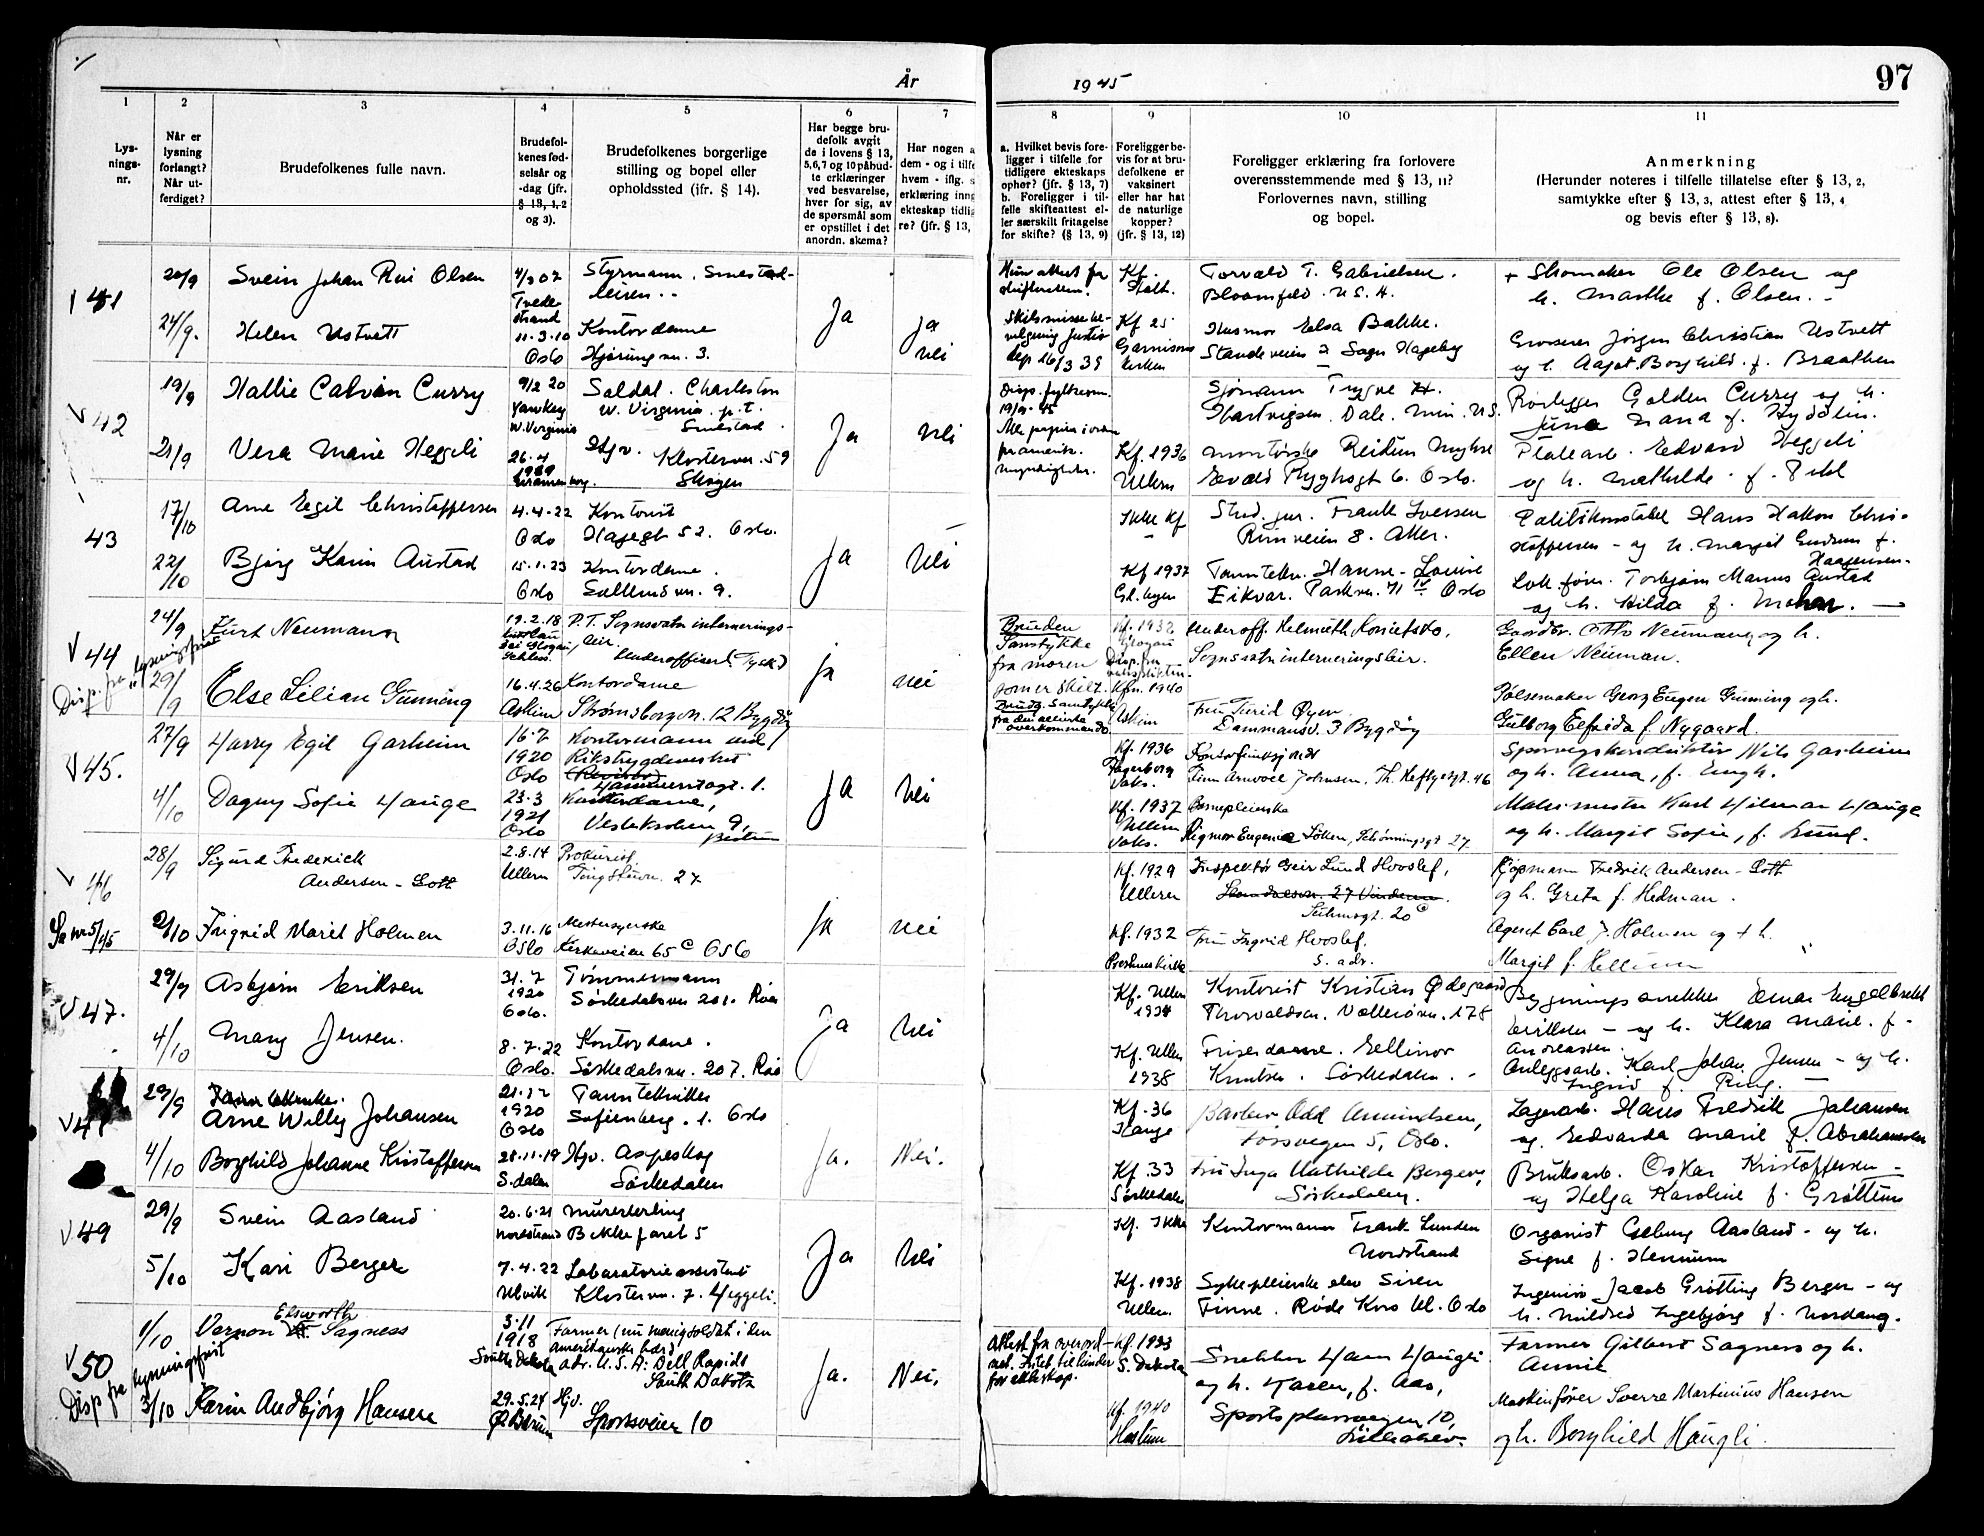 År
1945
97
1
2
3
4
5
6
7
8
9
10
11
Lys-
nings-
nr.
Når er
lysning
forlangt?
Når ut-
ferdiget?
Brudefolkenes fulle navn.
Brudefol-
kenes fød-
selsår og
-dag (jfr.
§ 13, 1, 2
og 3).
Brudefolkenes borgerlige
stilling og bopel eller
opholdssted (ifr. § 14).
Har begge bru-
defolk avgit
de i lovens § 13,
5,6,7 og 10 påbud-
te erklæringer
ved besvarelse,
hver for sig, av
de spørsmål som
er opstillet i det
anordn. skema?
Har nogen a
dem - og i tilfe
hvem - iflg. s
erklæring inng
ekteskap tidlig
re? (jfr. § 13,
a. Hvilket bevis fore-
ligger i tilfelle for
tidligere ekteskaps
ophør? (jfr. § 13, 7)
b. Foreligger i til-
felle skifteattest el-
ler særskilt fritagelse
for skifte? (§ 13, 9)
Foreligger be-
vis for at bru-
defolkene er
vaksinert
eller har hat
de naturlige
kopper?
(jfr. § 13, 12)
Foreligger erklæring fra forlovere
overensstemmende med § 13, 11?
Forlovernes navn, stilling
og bopel.
Anmerkning
(Herunder noteres i tilfelle tillatelse efter § 13, 2,
samtykke efter § 13, 3, attest efter § 13, 4
og bevis efter § 13, 8).
41
20/9
Svein Johan Rui Olsen
4/3 07
Tvede-
strand
Styrmann. Smestad-
leiren.
Ja
Kf.
Torvald T. Gabrielsen.
Bloomfeld. U S. A.
+ Skomaker Ole Olsen og
h. Marthe f. Olsen.
24/9.
Helen Ustvett
11-3-10
Oslo
Kontordame
Hjørungvn. 3.
ja
nei
Skilsmissebe-
vilgning Justis
dep 16/3 39
Kf 25
Garnisons
kirken
Husmor Elsa Bakke.
Sogn Hageby
Grosserer Jørgen Christian Ustvett
og h. Aagot Borghild f. Braathen
42
19/9
Hallie Calvin Curry
9/2 20
Yawkey
W. Virginia
Soldat. Charleston
W. Virginia. p.t.
Smestad
Ja
Nei
19/9-45
Sjømann Trygve H.
Hartvigsen. Dale. Min. U.S.
Rørlegger Golden Curry og h.
21/9
Vera Marie Heggeli
26.4
1919
Hjv. Klostervn. 59
Skøyen
Kf. 1936
Ullern
Oslo.
Platearb. Edvard Heggeli
og h. Mathilde f.
43
17/10
Arne Egil Christoffersen
4-4-22
Oslo
Kontorist
Hagegt 52. Oslo.
Ja
Nei
Ikke Kf
Stud. jur. Frank Iversen
Rimveien 8. Aker.
Politikonstabel Hans Hakon Chri-
stoffersen - og h. Margit Gudrun f.
Haagensen-
22/10
Bjørg Karin Austad
15-1-23
Oslo
Kontordame.
9.
Kf 1937
Tanntekn. Hanne-Louise
Eikvar. Parkvn. 71 IV Oslo
Lok. fører Torbjørn Marius Austad
og h. Hilda f.
44
Disp. fra lysningsfrist
24/9
Kurt Neumann
19.2.18
bei Glogau,
Schles.
P.T. Sognsvatn internerings-
leir.
Underoffiser (Tysk)
ja
nei
Bruden
Samtykke
fra moren
som er skilt.
Brudg. Samtykke
fra den allierte
overkommando
Kf. 1932
Glogau
Disp. fra
Kfm. 1940
Askim
Underoff. Helmuth
Sognsvatn interneringsleir.
Gaardbr. Otto Neumann og h.
Ellen Neuman.
29/9
Else Lilian Gunning
16.4.26
Askim
Kontordame
Strømsborgvn. 12 Bygdøy
Fru Turid Øyen
Dammansv. 3 Bygdøy
Pølsemaker Georg Eugen Gunning og h.
Gulborg Elfrida f. Nygaard.
45.
27/9
Harry Egil Garheim
16.7
1920
Oslo
Kontormann ved
Rikstrygdeverket
(Revisor)
Hammerstagt. 1.
Ja
Nei
Kf. 1936
Fagerborg
Vaks.
Kontorfunksjonær
Finn Arnvoll Johnsen, Th. Heftyesgt. 46
Sporvegskonduktør Nils Garheim
og h. Anna, f. Engh.
4/10
Dagny Sofie Hauge
23.3
1921
Oslo
Kontordame,
9,
Bestum
Kf. 1937
Ullern
Vaks.
Barnepleierske
Rigmor Eugenie Løken, Schønningsgt 27
Malermester Karl Hilmar Hauge
og h. Margit Sofie, f. Lund.
46
Se nr 5/45
28/9
Sigurd Frederick
Andersen-Gott
2.8.14
Ullern
Prokurist
Tingstuvn. 27
ja
nei
Kf. 1929
Ullern
Inspektør Geir Lund Hvoslef,
Suhmsgt. 20 c
Kjøpmann Fredrik Andersen-Gott
og h. Greta f. Hedman.
2/10
Ingrid Marit Holmen
3.11.16
Oslo
Kirkeveien 65 c Oslo
Kf. 1932
Fru Ingrid Hvoslef.
s. adr.
Agent Carl J. Holmen og + h.
Margit f.
47.
29/9
Asbjørn Eriksen
31.7
1920
Oslo.
Tømmermann
Sørkedalsvn 201. Røa
Ja
Nei
Kf. Ullern
1934
Kontorist Kristian Ødegaard
Thorvaldsen. Vollerøvn. 178
Bygningssnekker Einar Engelbrekt
Eriksen - og h. Klara Marie f.
Andreassen.
4/10
Mary Jensen.
8.7.22
Oslo.
Kontordame.
Sørkedalsvn. 207. Røa
Kf. Ullern
1938
Friserdame Ellinor
Knutsen. Sørkedalen.
Anleggsarb. Karl Johan Jensen - og h.
Ingrid f. Ring.
29/9
Arne Willy Johansen
21.12
1920
Oslo
Tanntekniker
Sofienberg. 1. Oslo
Ja.
Nei.
Kf. 36
Hauge
Barber Odd Amundsen,
Forsvegen 5, Oslo.
Lagerarb. Hans Fredrik Johansen
og Edvarda Marie f. Abrahamsen
4/10
Borghild Johanne Kristoffersen
28.11.19
S.dalen
Hjv. Aspeskog
Sørkedalen
Kf. 33
Sørkedalen
Fru Inga Mathilde Berger,
Sørkedalen.
Bruksarb. Oskar Kristoffersen
og Helga Karoline f. Grøttum
49
29/9
Svein Aasland
20.6.21
Nordstrand
Murerlærling
Bekkefaret 5
Ja
Nei
Kf. Ikke
Kontormann Frank Lunden
Nordstrand
Organist Aasland - og h.
Signe f. Hennum
5/10
Kari Berger
7.4.22
Ulvik
Laboratorieassistent
Klostervn. 7. Heggeli.
Kf. 1938
Ullern.
Sykepleierske elev Siren
Finne. Røde Kors kl. Oslo
Ingeniør Jacob Grøtting Berger - og
h. Mildred Ingebjørg f. Nordang.
50
Disp fra lysningsfrist
1/10
Vernon Elsworth Sagness
3.11
1918
South Dakota
Farmer (nu menig soldat i den
amerikanske hær)
adr. U.S.A. Dell Rapids
South Dakota
Ja.
Nei.
Attest fra overord-
net. Intet til hinder
for ekteskap.
Kf. 1933
S. Dakota
Snekker Hans Haugli
og h. Karen, f. Aas,
Farmer Gilbert Sagness og h.
Annie
3/10
Karin Andbjørg Hansen
29.5.24
Ø. Bærum
Hjv.
Sportsveien 10
Kf. 1940
Haslum
Sportsplassvegen 10,
Maskinfører Sverre Martinius Hansen
og h. Borghild Haugli.